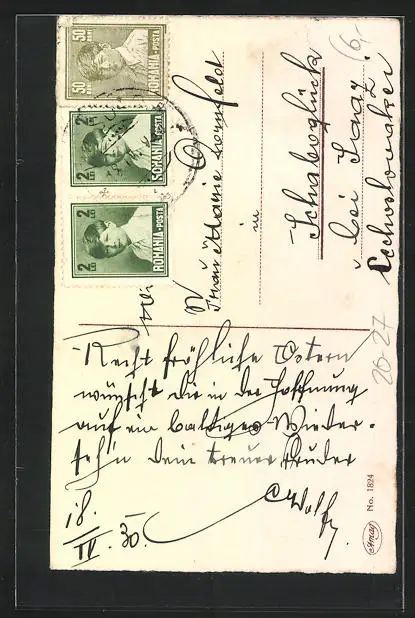 50 BANI
ROMANIA-POSTA
2 LEI
ROMANIA-POSTA
2 LEI
ROMANIA-POSTA
6,-
Kornfeld
in
Schaboglück
bei Saaz
Čechoslovakei
20-27
Recht fröhliche Ostern
wünscht dir in der Hoffnung
auf ein baldiges Wieder-
seh'n dein treuer Bruder
Wolf
18.
IV. 30.
Amag
No. 1824